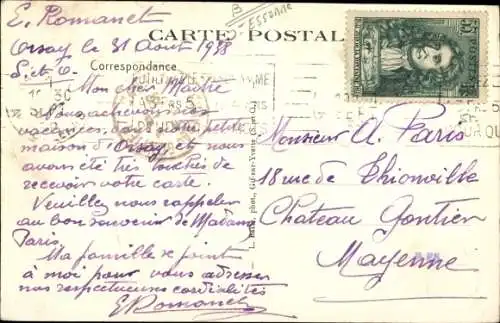 E. Romanet
Orsay le 31 Août 1938
S. et O.
B
ESSONNE
CARTE POSTAL
Correspondance
Mon cher Maître
Nous achevons nos
vacances, dans notre petite
maison d'Orsay et nous
avons été très touchés de
recevoir votre carte.
Veuillez nous rappeler
au bon souvenir de Madame
Paris
Ma famille se joint
à moi pour vous adresser
nos respectueuses cordialités
E Romanet
phot., Gif-sur-Yvette (S.-et-O.)
POSTES
Monsieur A. Paris
18 rue de Thionville
Chateau Gontier
Mayenne